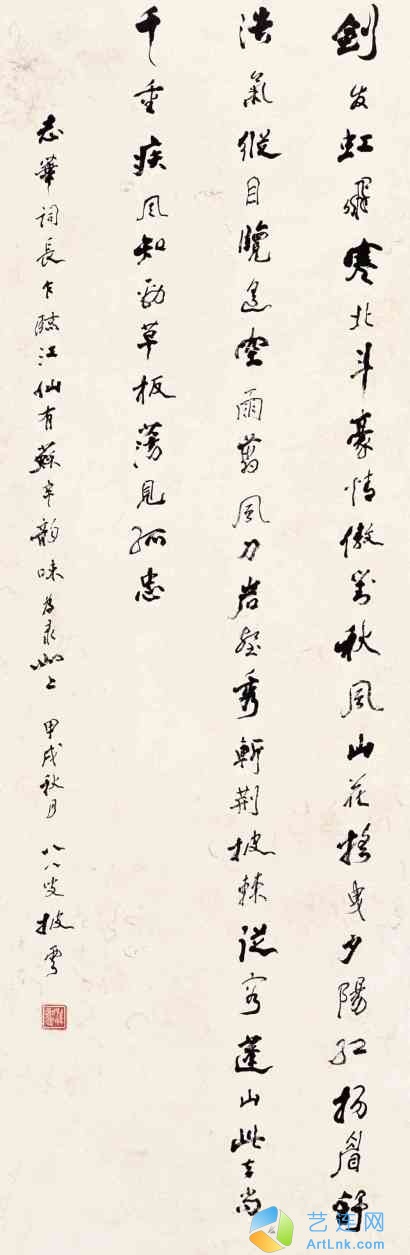 劍发虹飛寒北斗豪情傲對秋風山花搖曳夕陽红扬眉舒
浩氣縱目覽遥空雨翦風刀岩壑秀斬荆披棘從容蓬山此去尚
千重疾風知勁草板蕩見孤忠
志華詞長乍臨江仙有蘇辛韵味為录此上 甲戌秋月 八八叟披雲
艺连网
ArtLnk.com